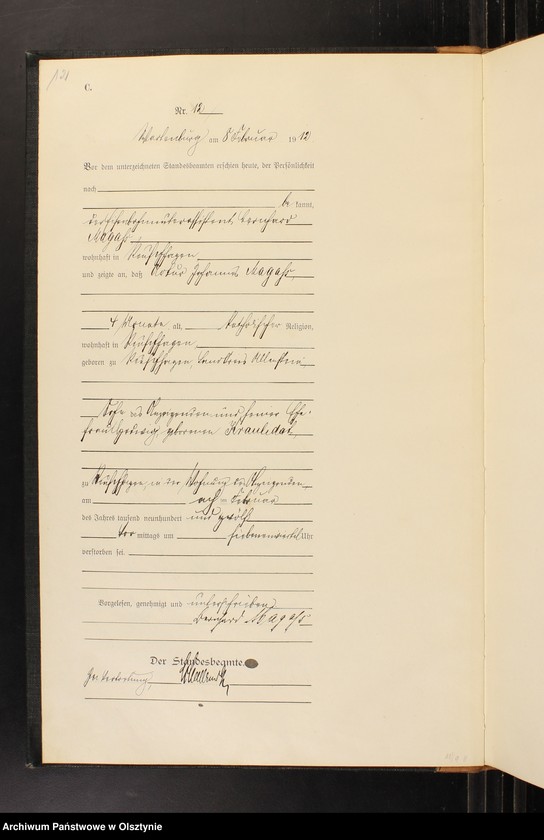 121
C.
Nr. 12
Wartenburg am 8 Februar 1912
Vor dem unterzeichneten Standesbeamten erschien heute, der Persönlichkeit
nach
be kannt,
der Eisenbahnunterassistent Bernhard
Magahs
wohnhaft in Reuschhagen
und zeigte an, daß Artur Johannes Magahs,
4 Monate alt, katholischer Religion,
wohnhaft in Reuschhagen
geboren zu Reuschhagen, Landkreis Allenstein
Sohn des Anzeigenden und seiner Ehe-
frau Hedwig geborenen Krauledat,
zu Reuschhagen, in der Wohnung des Anzeigenden
am acht Februar
des Jahres tausend neunhundert und zwölf
vor mittags um Uhr
verstorben sei.
Vorgelesen, genehmigt und unterschrieben
Bernhard Magahs
Der Standesbeamte.
In Vertretung,
Archiwum Państwowe w Olsztynie